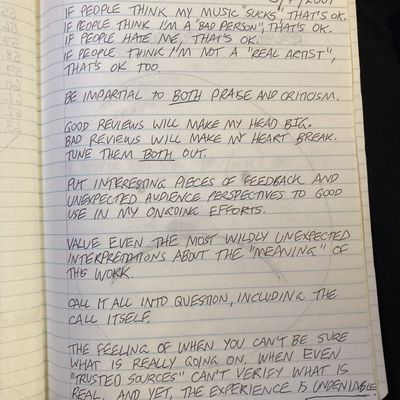 IF PEOPLE THINK MY MUSIC "SUCKS", THAT'S OK.
IF PEOPLE THINK I'M A "BAD PERSON", THAT'S OK.
IF PEOPLE HATE ME, THAT'S OK.
IF PEOPLE THINK I'M NOT A "REAL ARTIST",
THAT'S OK TOO.
BE IMPARTIAL TO BOTH PRAISE AND CRITICISM.
GOOD REVIEWS WILL MAKE MY HEAD BIG.
BAD REVIEWS WILL MAKE MY HEART BREAK.
TUNE THEM BOTH OUT.
PUT INTERESTING PIECES OF FEEDBACK AND
UNEXPECTED AUDIENCE PERSPECTIVES TO GOOD
USE IN MY ONGOING EFFORTS.
VALUE EVEN THE MOST WILDLY UNEXPECTED
INTERPRETATIONS ABOUT THE "MEANING" OF
THE WORK.
CALL IT ALL INTO QUESTION, INCLUDING THE
CALL ITSELF.
THE FEELING OF WHEN YOU CAN'T BE SURE
WHAT IS REALLY GOING ON. WHEN EVEN
"TRUSTED SOURCES" CAN'T VERIFY WHAT IS
REAL. AND YET, THE EXPERIENCE IS UNDENIABLE